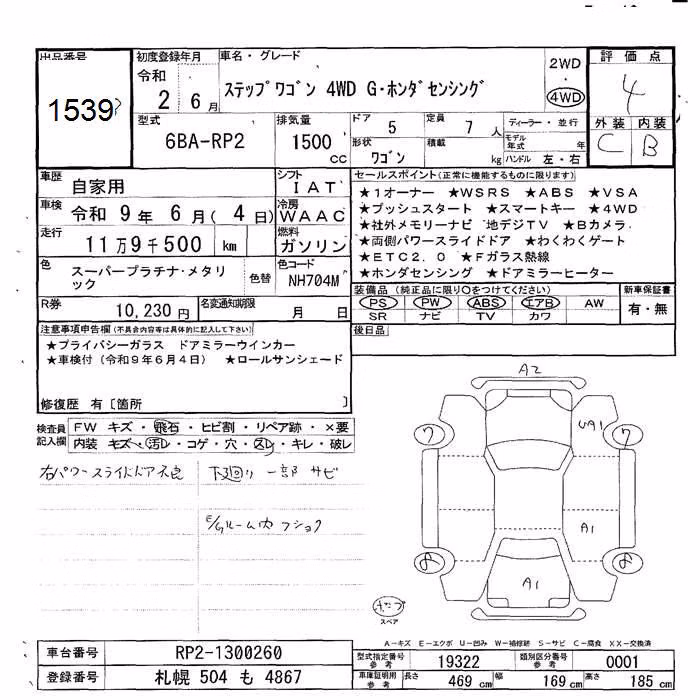 出品番号
1539
初度登録年月
令和 2年 6月
車名・グレード
ステップワゴン 4WD G・ホンダセンシング
2WD
・
4WD
評価点
4
外装 内装
C B
型式
6BA-RP2
排気量
1500 cc
ドア 5
定員 7 人
形状 ワゴン
積載 kg
ディーラー・並行
モデル年式 年
ハンドル 左・右
車歴 自家用
シフト IAT
車検 令和 9年 6月( 4日)
冷房 WAAC
走行 11万9千500 km
燃料 ガソリン
色 スーパープラチナ・メタリック
色替
色コード NH704M
R券 10,230円
名変通知期限 月 日
セールスポイント(正常に機能するものに限ります)
★1オーナー ★WSRS ★ABS ★VSA
★プッシュスタート ★スマートキー ★4WD
★社外メモリーナビ 地デジTV ★Bカメラ
★両側パワースライドドア ★わくわくゲート
★ETC2.0 ★Fガラス熱線
★ホンダセンシング ★ドアミラーヒーター
装備品(純正品に限り○をつけてください)
PS PW ABS エアB AW
SR ナビ TV カワ
新車保証書
有・無
後日品
注意事項申告欄(不具合内容等は具体的に記入して下さい)
★プライバシーガラス ドアミラーウインカー
★車検付(令和9年6月4日) ★ロールサンシェード
修復歴 有[箇所 ]
検査員記入欄
FW キズ・飛石・ヒビ割・リペア跡・×要
内装 キズ・汚レ・コゲ・穴・スレ・キレ・破レ
右パワースライドドア不良
下廻り一部サビ
E/gルーム内フショク
A2
UA1
ワ
ワ
A1
A1
スペア
A-キズ E-エクボ U-凹み W-補修跡 S-サビ C-腐食 XX-交換済
車台番号 RP2-1300260
登録番号 札幌 504 も 4867
型式指定番号 参考 19322
類別区分番号 参考 0001
車庫証明用 参考 長さ 469 cm 幅 169 cm 高さ 185 cm